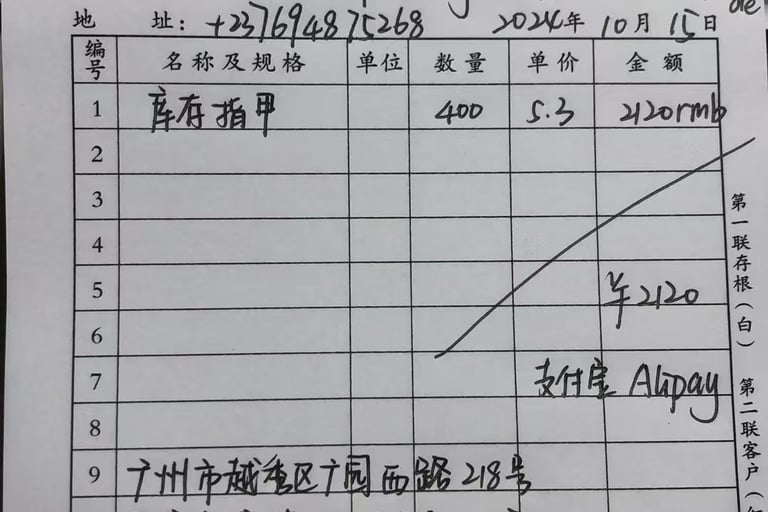 地 址: +237694875268 2024年 10月 15日
编号 名称及规格 单位 数量 单价 金额
1 库存指甲 400 5.3 2120rmb
2
3
4
5 ¥2120
6
7 支付宝 Alipay
8
9 广州市越秀区广园西路218号
第一联存根(白) 第二联客户